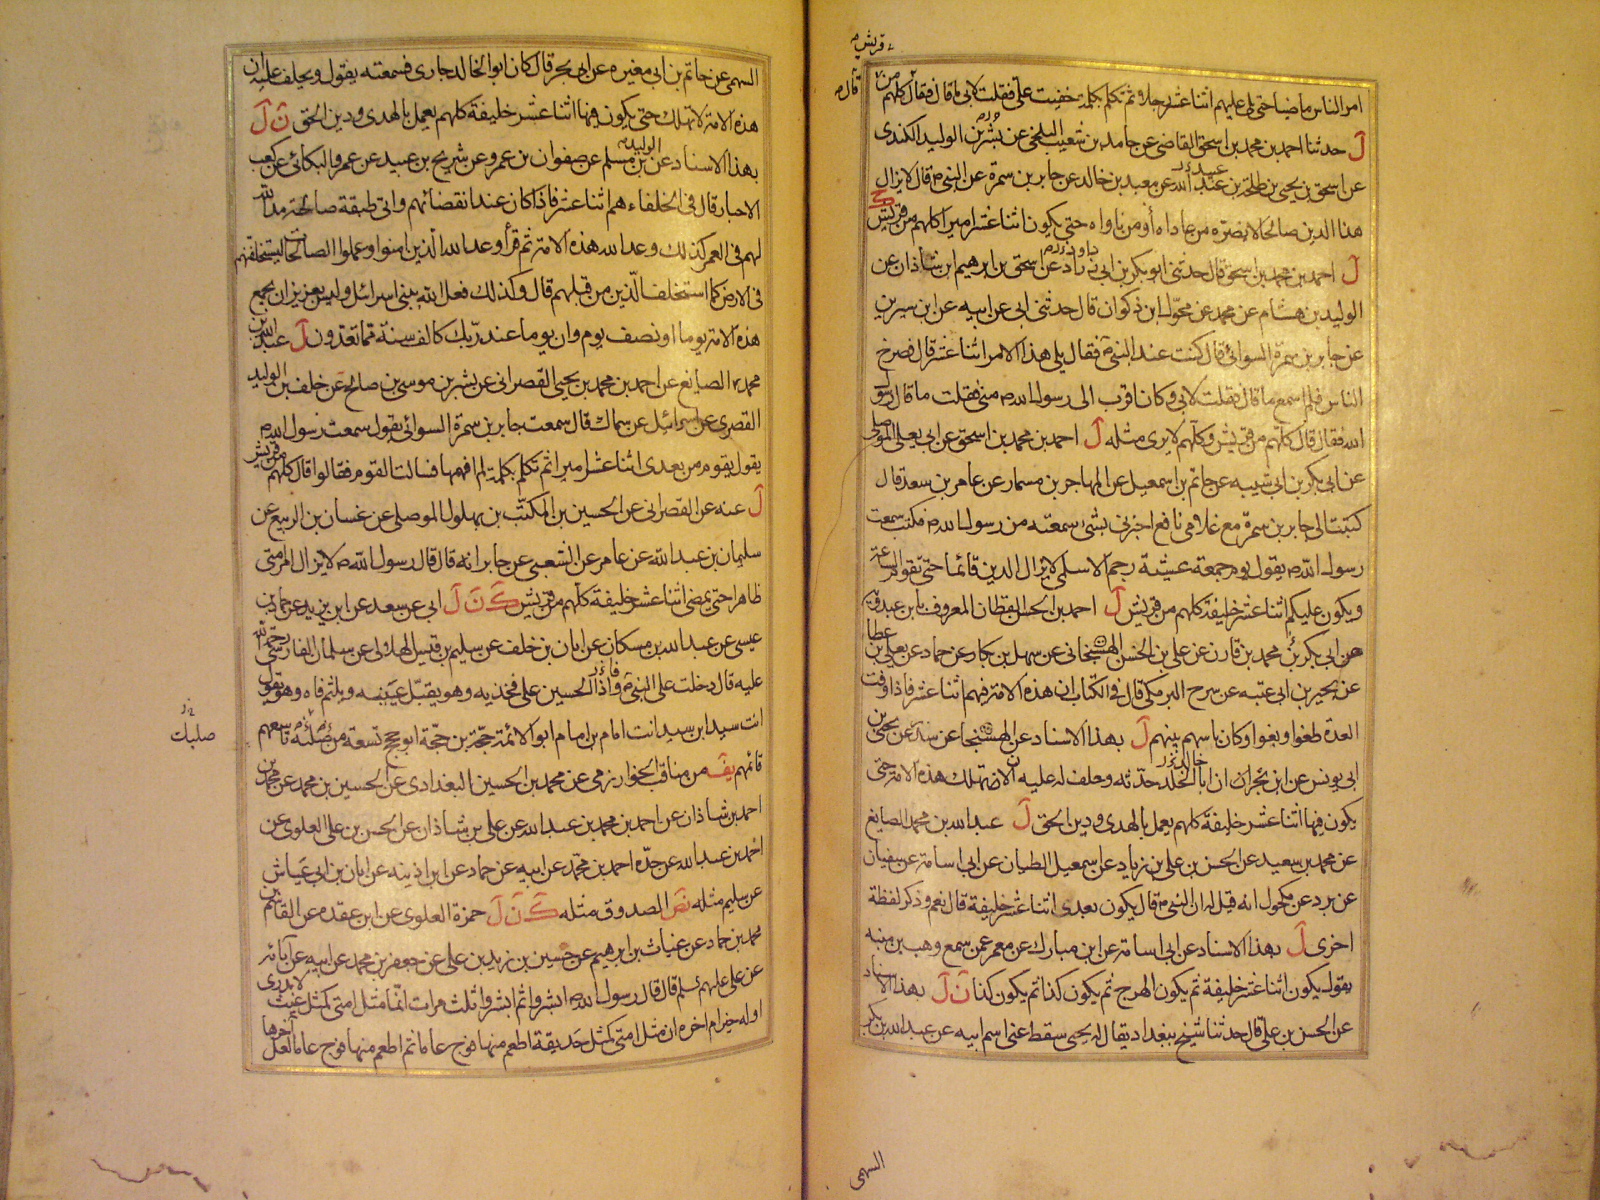 قريش
قال
امر الناس ماضيا حتى يلى عليهم اثنا عشر رجلا و ثم تكلم بكلمة خفيت علىّ فقلت لابى ما قال فقال كلهم من
ل حدثنا احمد بن محمد بن اسحق القاضى عن حامد بن شعيب البلخى عن بشر بن الوليد الكندى
عن اسحق بن يحيى بن طلحة بن عبد الله عن معبد بن خالد عن جابر بن سمرة عن النبى ص قال لا يزال
هذا الدين صالحا لا يضرّه من عاداه أو من ناواه حتى يكون اثنا عشر اميرا كلهم من قريش
ل احمد بن محمد بن اسحق قال حدثنى ابو بكر بن ابى داود عن اسحق بن ابرهيم ابن شاذان عن
الوليد بن هشام عن محمد عن مخول ابن ذكوان قال حدثنى ابى عن ابيه عن ابن سيرين
عن جابر بن سمرة السوائى قال كنت عند النبى ص فقال يلى هذا الامر اثنا عشر قال فصرخ
الناس فلم اسمع ما قال فقلت لابى و كان اقرب الى رسول الله ص منى فقلت ما قال رسول
الله فقال قال كلّهم من قريش و كلّهم لا يرى مثله ل احمد بن محمد بن اسحق عن ابى يعلى الموصلى
عن ابى بكر بن ابى شيبه عن حاتم بن اسمعيل عن المهاجر بن مسمار عن عامر بن سعد قال
كتبت الى جابر بن سمرة مع غلامى نافع اخبرنى بشىء سمعته من رسول الله ص فكتب سمعت
رسول الله ص يقول يوم جمعة عشيّة رجم الاسلمى لا يزال الدين قائما حتى تقوم الساعة
و يكون عليكم اثنا عشر خليفة كلهم من قريش ل احمد بن الحسن القطان المعروف بابن عبدويه
عن ابى بكر بن محمد بن قارن عن على بن الحسن الهسنجانى عن سهل بن بكار عن حماد عن يعلى بن عطا
عن بحير بن ابى عتبه عن سرح البرمكى قال فى الكتاب ان هذه الامة فيهم اثنا عشر فاذا وفت
العدة طغوا و بغوا و كان باسهم بينهم ل بهذا الاسناد عن الهسنجانى عن عن يحيى بن
ابى يونس عن ابن نجران ان ابا الخلد حدّثه و حلف له عليه الا تهلك هذه الامة حتى
يكون فيها اثنا عشر خليفة كلهم يعمل بالهدى و دين الحق ل عبد الله بن محمد الصايغ
عن محمد بن سعيد عن الحسن بن على بن زياد عن اسمعيل الطيان عن ابى اسامة عن سفيان
عن برد عن مكحول انه قيل له ان النبى ص قال يكون بعدى اثنا عشر خليفة قال نعم و ذكر لفظة
اخرى ل بهذا الاسناد عن ابى اسامة عن ابن مبارك عن معمر عمن سمع وهب بن منبه
يقول يكون اثنا عشر خليفة ثم يكون الهرج ثم يكون كذا ثم يكون كذا ن ل بهذا الاسناد
عن الحسن بن على قال حدثنا شيخ ببغداد يقال له يحيى سقط عنى اسم ابيه عن عبد الله بن بكر
السهمى
السهمى عن حاتم بن ابى مغيره عن ابى بحر قال كان ابو الخالد جارى فسمعته يقول و يحلف عليه ان
هذه الامة لا تهلك حتى يكون فيها اثنا عشر خليفة كلهم يعمل بالهدى و دين الحق ن ل
بهذا الاسناد عن الوليد بن مسلم عن صفوان بن عمرو عن شريح بن عبيد عن عمرو البكائى عن كعب
الاحبار قال فى الخلفاء هم اثنا عشر فاذا كان عند انقضائهم و اتى طبقة صالحة مد الله
لهم فى العمر كذلك وعد الله هذه الامة ثم قرأ وعد الله الذين امنوا و عملوا الصالحات ليستخلفنّهم
فى الارض كما استخلف الّذين من قبلهم قال و كذلك فعل الله ببنى اسرائيل و ليس بعزيز ان يجمع
هذه الامة يوما او نصف يوم و ان يوما عند ربك كالف سنة مما تعدون ل عبد الله بن
محمد الصايغ عن احمد بن محمد بن يحيى القصرانى عن بشر بن موسى بن صالح عن خلف بن الوليد
القصرى عن اسرائيل عن سماك قال سمعت جابر بن سمرة السوائى يقول سمعت رسول الله ص
يقول يقوم من بعدى اثنا عشر اميرا ثم تكلم بكلمة لم افهمها فسالت القوم فقالوا قال كلهم من قريش
ل عنه عن القصرانى عن الحسين بن المكتّب بن بهلول الموصلى عن غسان بن الربيع عن
سليمان بن عبد الله عن عامر عن الشعبى عن جابر انه قال قال رسول الله ص لا يزال امر امتى
ظاهرا حتى يمضى اثنا عشر خليفة كلهم من قريش ك ن ل ابى عن سعد عن ابن يزيد عن حماد بن
عيسى عن عبد الله بن مسكان عن ابان بن خلف عن سليم بن قيس الهلالى عن سلمان الفارسى رحمة الله
عليه قال دخلت على النبى ص فاذا الحسين على فخذيه و هو يقبّل عينيه و يلثم فاه و هو يقول
انت سيد ابن سيد انت امام بن امام ابو الائمة حجّة بن حجّة ابو حجج تسعة من صلبك تاسعهم
صلبك
قائمهم يف من مناقب الخوارزمى عن محمد بن الحسين البغدادى عن الحسين بن محمد عن محمد بن
احمد بن شاذان عن احمد بن محمد بن عبد الله عن على بن شاذان عن الحسن بن على العلوى عن
احمد بن عبد الله عن جدّه احمد بن محمّد عن ابيه عن حماد عن ابن اذينه عن ابان بن ابى عياش
عن سليم مثله نص الصدوق مثله ك ن ل حمزة العلوى عن ابن عقده عن القاسم بن
محمد بن حماد عن غياث بن ابرهيم عن حسين بن زيد بن على عن جعفر بن محمد عن ابيه عن آبائه
عن على عليهم السلم قال قال رسول الله ص ابشروا ثم ابشروا ثلث مرات انّما مثل امتى كمثل غيث لا يدرى
اوله خير ام اخره ان مثل امتى كمثل حديقة اطعم منها فوج عاما ثم اطعم منها فوج عاما لعل آخرها